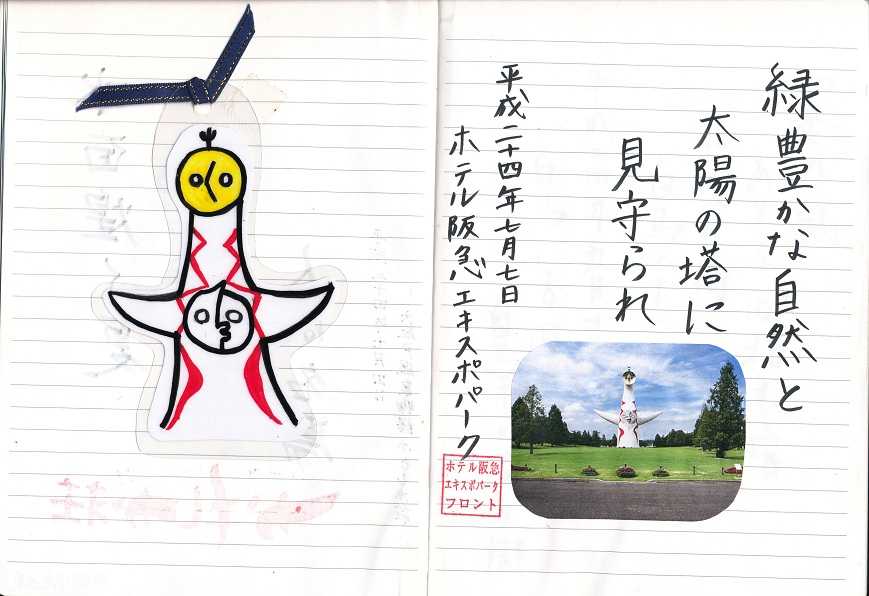 緑豊かな自然と
太陽の塔に
見守られ
平成二十四年七月七日
ホテル阪急エキスポパーク
ホテル阪急
エキスポパーク
フロント